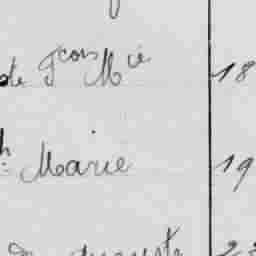 de Fcois Mie 18
h. Marie 19
Auguste